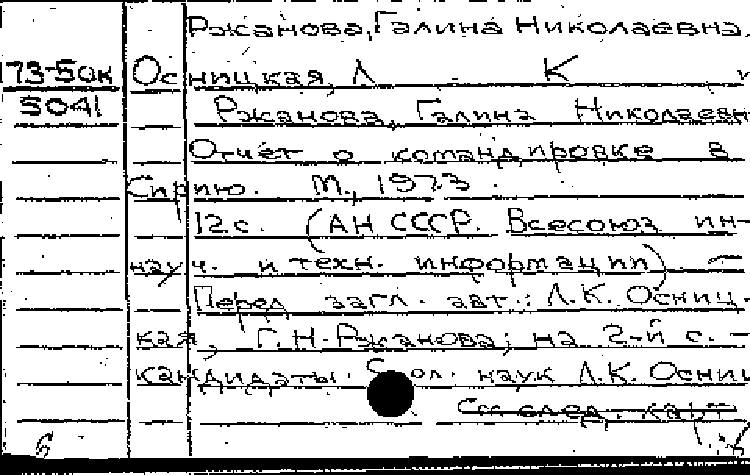 Ржанова, Галина Николаевна.
173-50к Осницкая, Л К и
5041 Ржанова, Галина Николаевн
Отчёт о командировке в
Сирию. М., 1973.
12 с. (АН СССР. Всесоюз ин-
науч. и техн. информации) —
Перед загл. авт.: Л.К. Осниц-
кая, Г.Н. Ржанова; на 2-й с. —
кандидаты биол. наук Л.К. Осниц
См след. карт